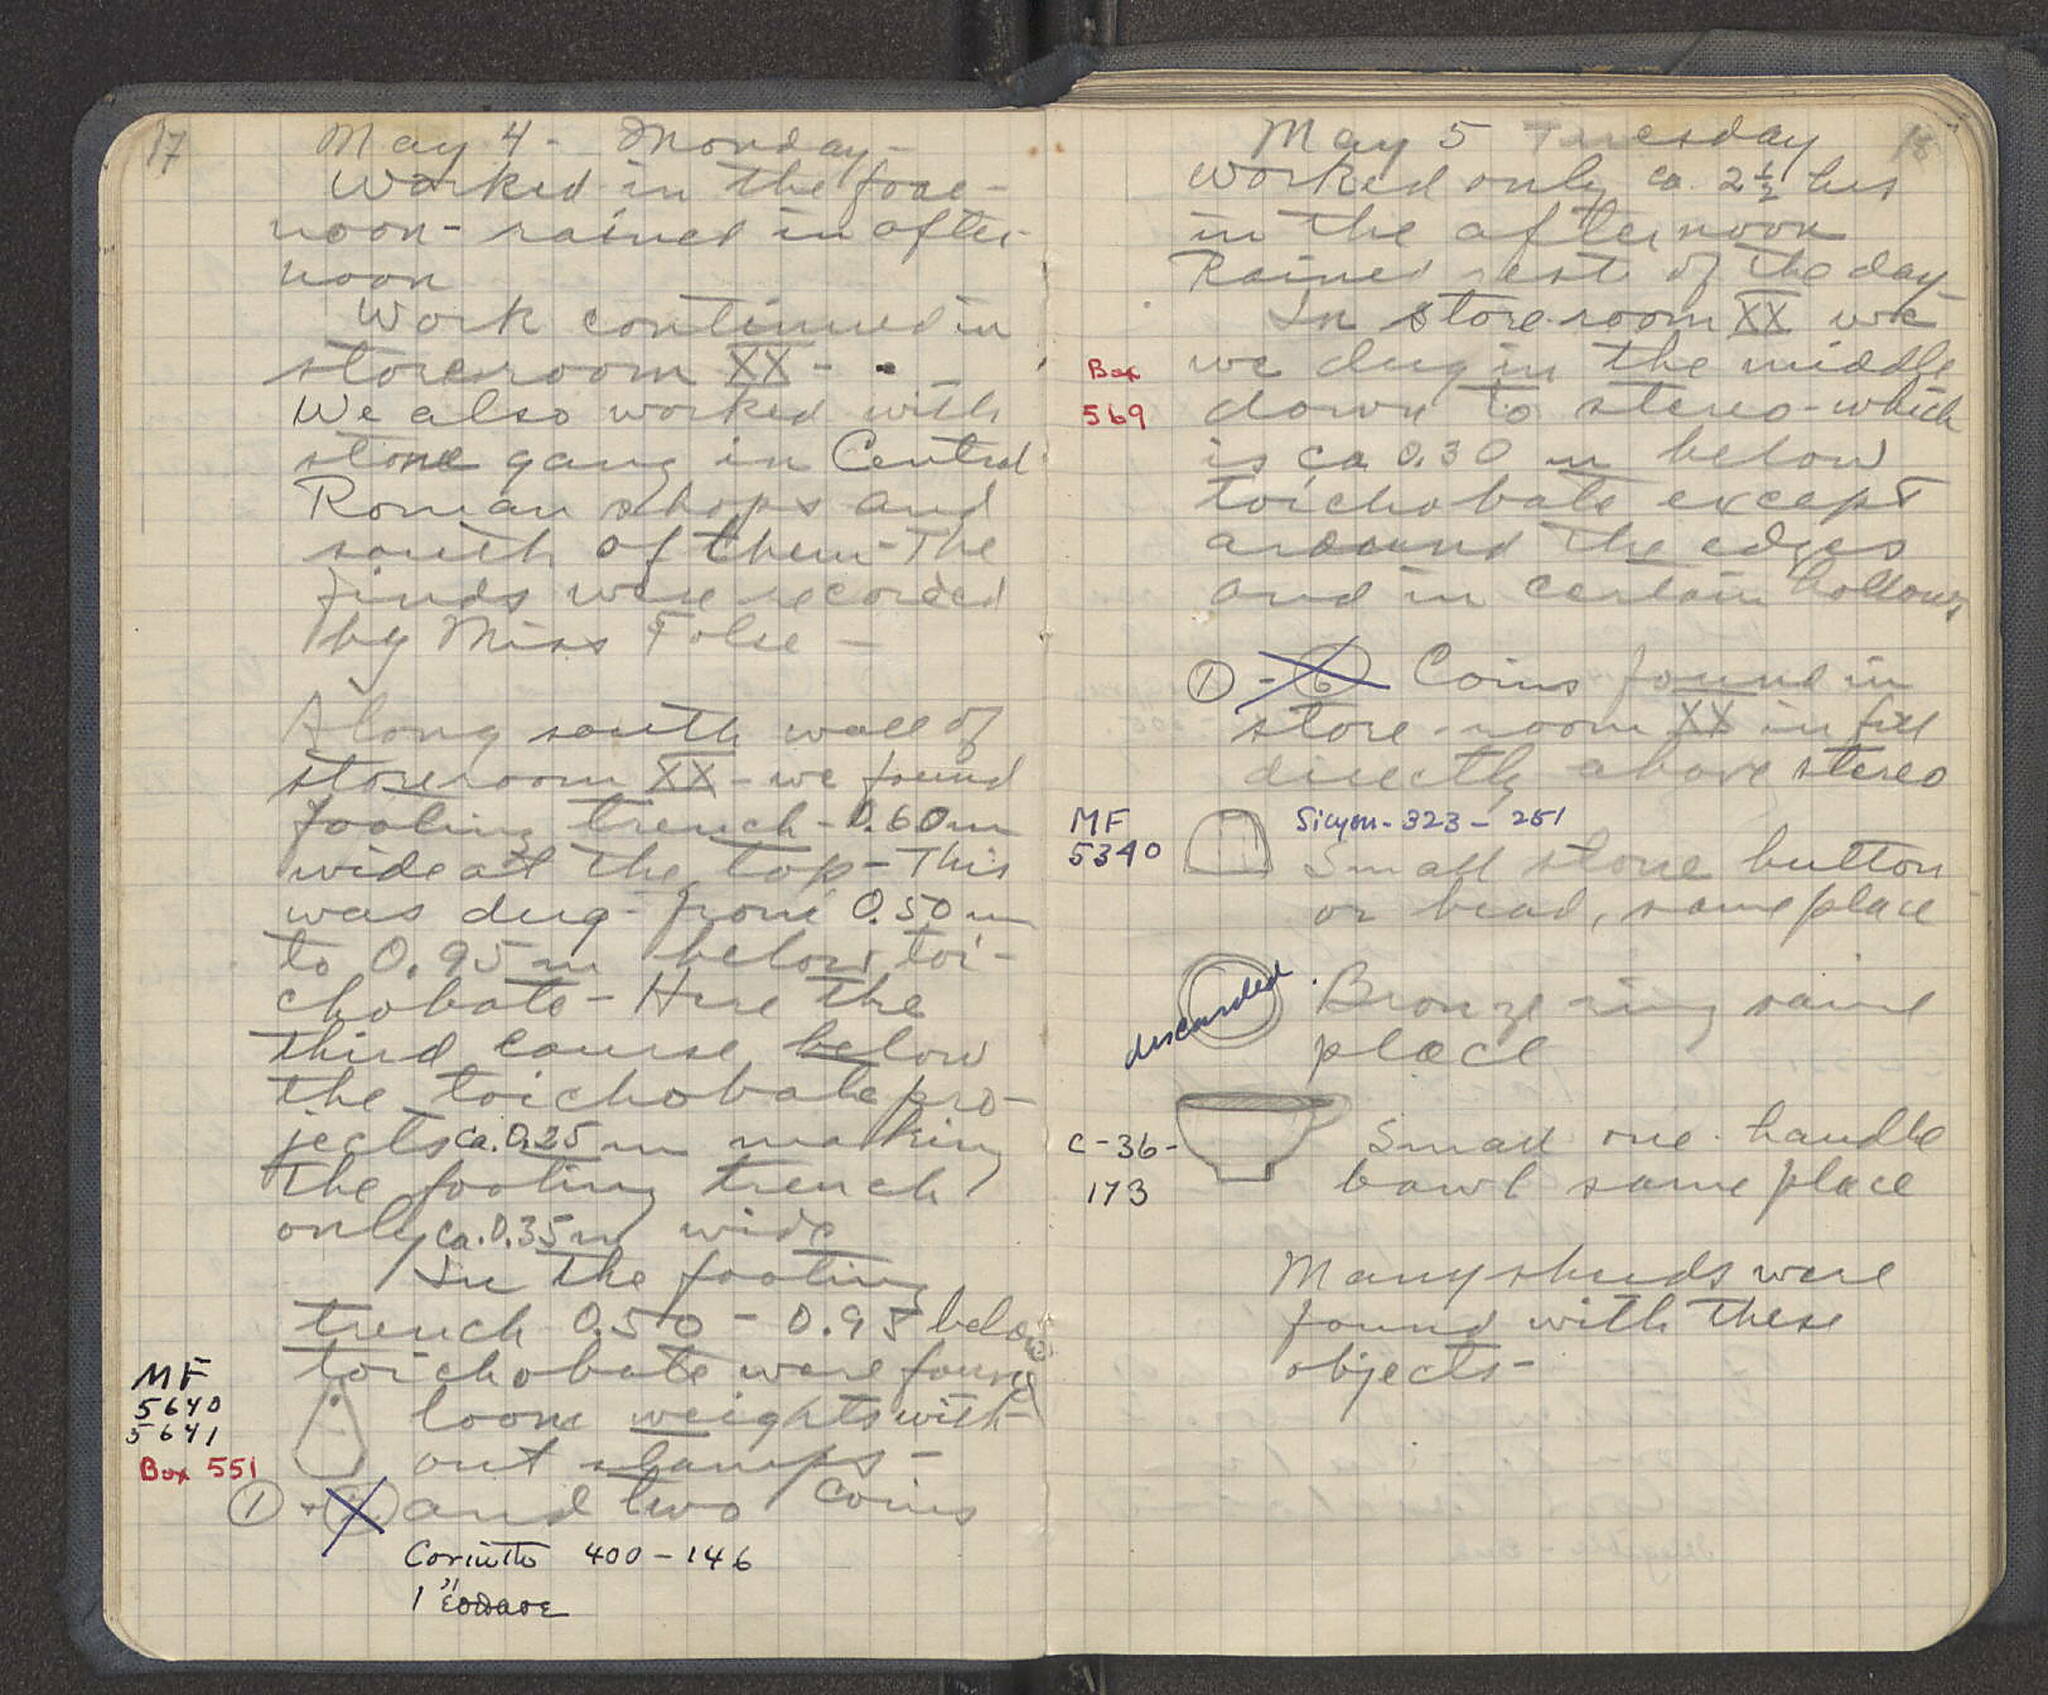 17
May 4 - Monday -
Worked in the fore-
noon - rained in after-
noon
Work continued in
storeroom XX -
We also worked with
stone gang in Central
Roman shops and
south of them - The
finds were recorded
by Miss Folse -
Along south wall of
storeroom XX - we found
footing trench - 0.60 m
wide at the top - This
was dug - from 0.50 m
to 0.95 m below toi-
chobate - Here the
third course below
the toichobate pro-
jects ca. 0.25 m making
the footing trench
only ca. 0.35 m wide
In the footing
trench 0.50 - 0.95 below
toichobate were found
MF
5640
5641
Box 551
loom weights with-
out stamps -
1 + and two coins
Corinth 400 - 146
1
18
May 5 Tuesday
Worked only ca. 2 1/2 hrs
in the afternoon
Rained rest of the day
In store-room XX we
Box
569
we dug in the middle
down to stereo - which
is ca 0.30 m below
toichobate except
around the edges
and in certain hollows
1 - 6 Coins found in
store-room XX in fill
directly above stereo
Sicyon - 323 - 251
MF
5340
Small stone button
or bead, same place
discarded
Bronze ring same
place
C-36-
173
Small one-handle
bowl same place
Many sherds were
found with these
objects -